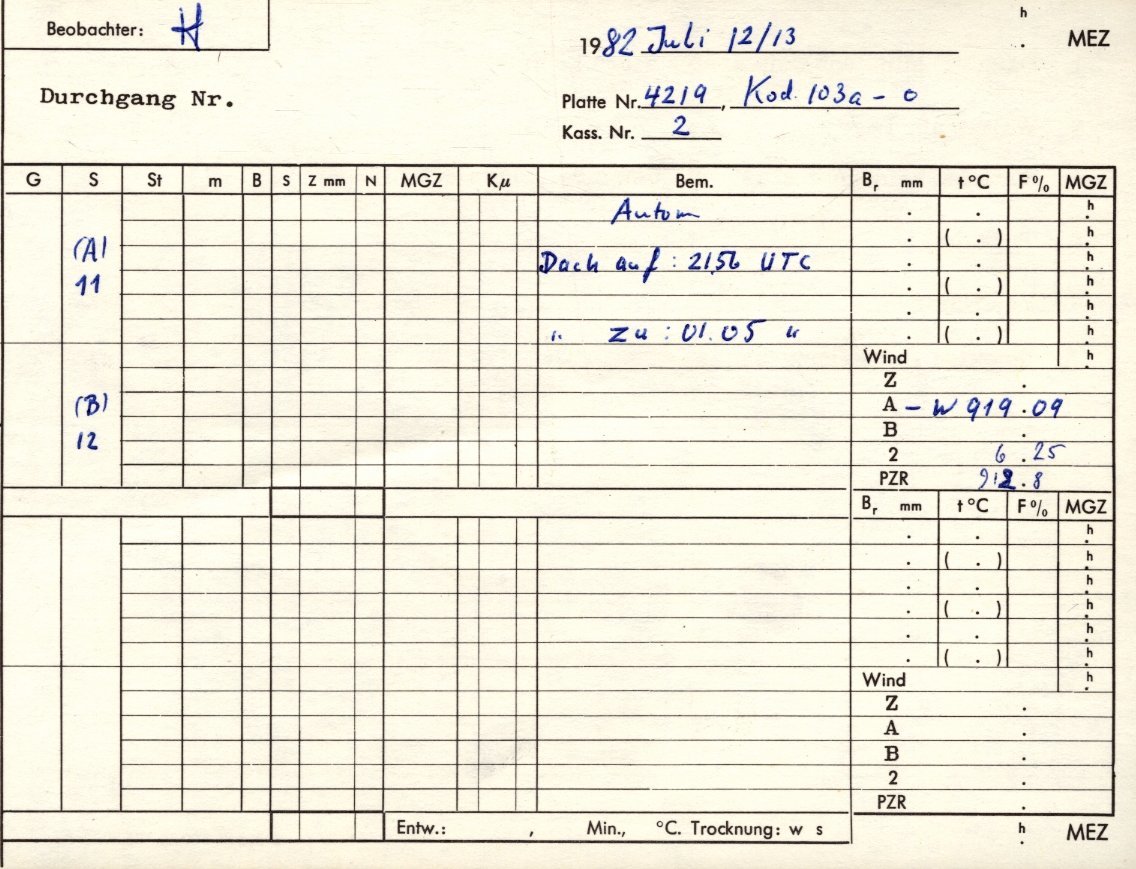 Beobachter: H
1982 Juli 12/13
h . MEZ
Durchgang Nr.
Platte Nr. 4219, Kod. 103a - o
Kass. Nr. 2
G S St m B S Z mm N MGZ Kμ Bem. Br mm t °C F % MGZ
Autom . . h
(A) . ( . ) h
Dach auf : 21.56 UTC . . h
11 . ( . ) h
. . h
" zu : 01.05 " . ( . ) h
Wind h
Z .
(B) A - W 919.09
12 B .
2 6.25
PZR 912.8
Br mm t °C F % MGZ
. . h
. ( . ) h
. . h
. ( . ) h
. . h
. ( . ) h
Wind h
Z .
A .
B .
2 .
PZR .
Entw.: , Min., °C. Trocknung: w s h . MEZ